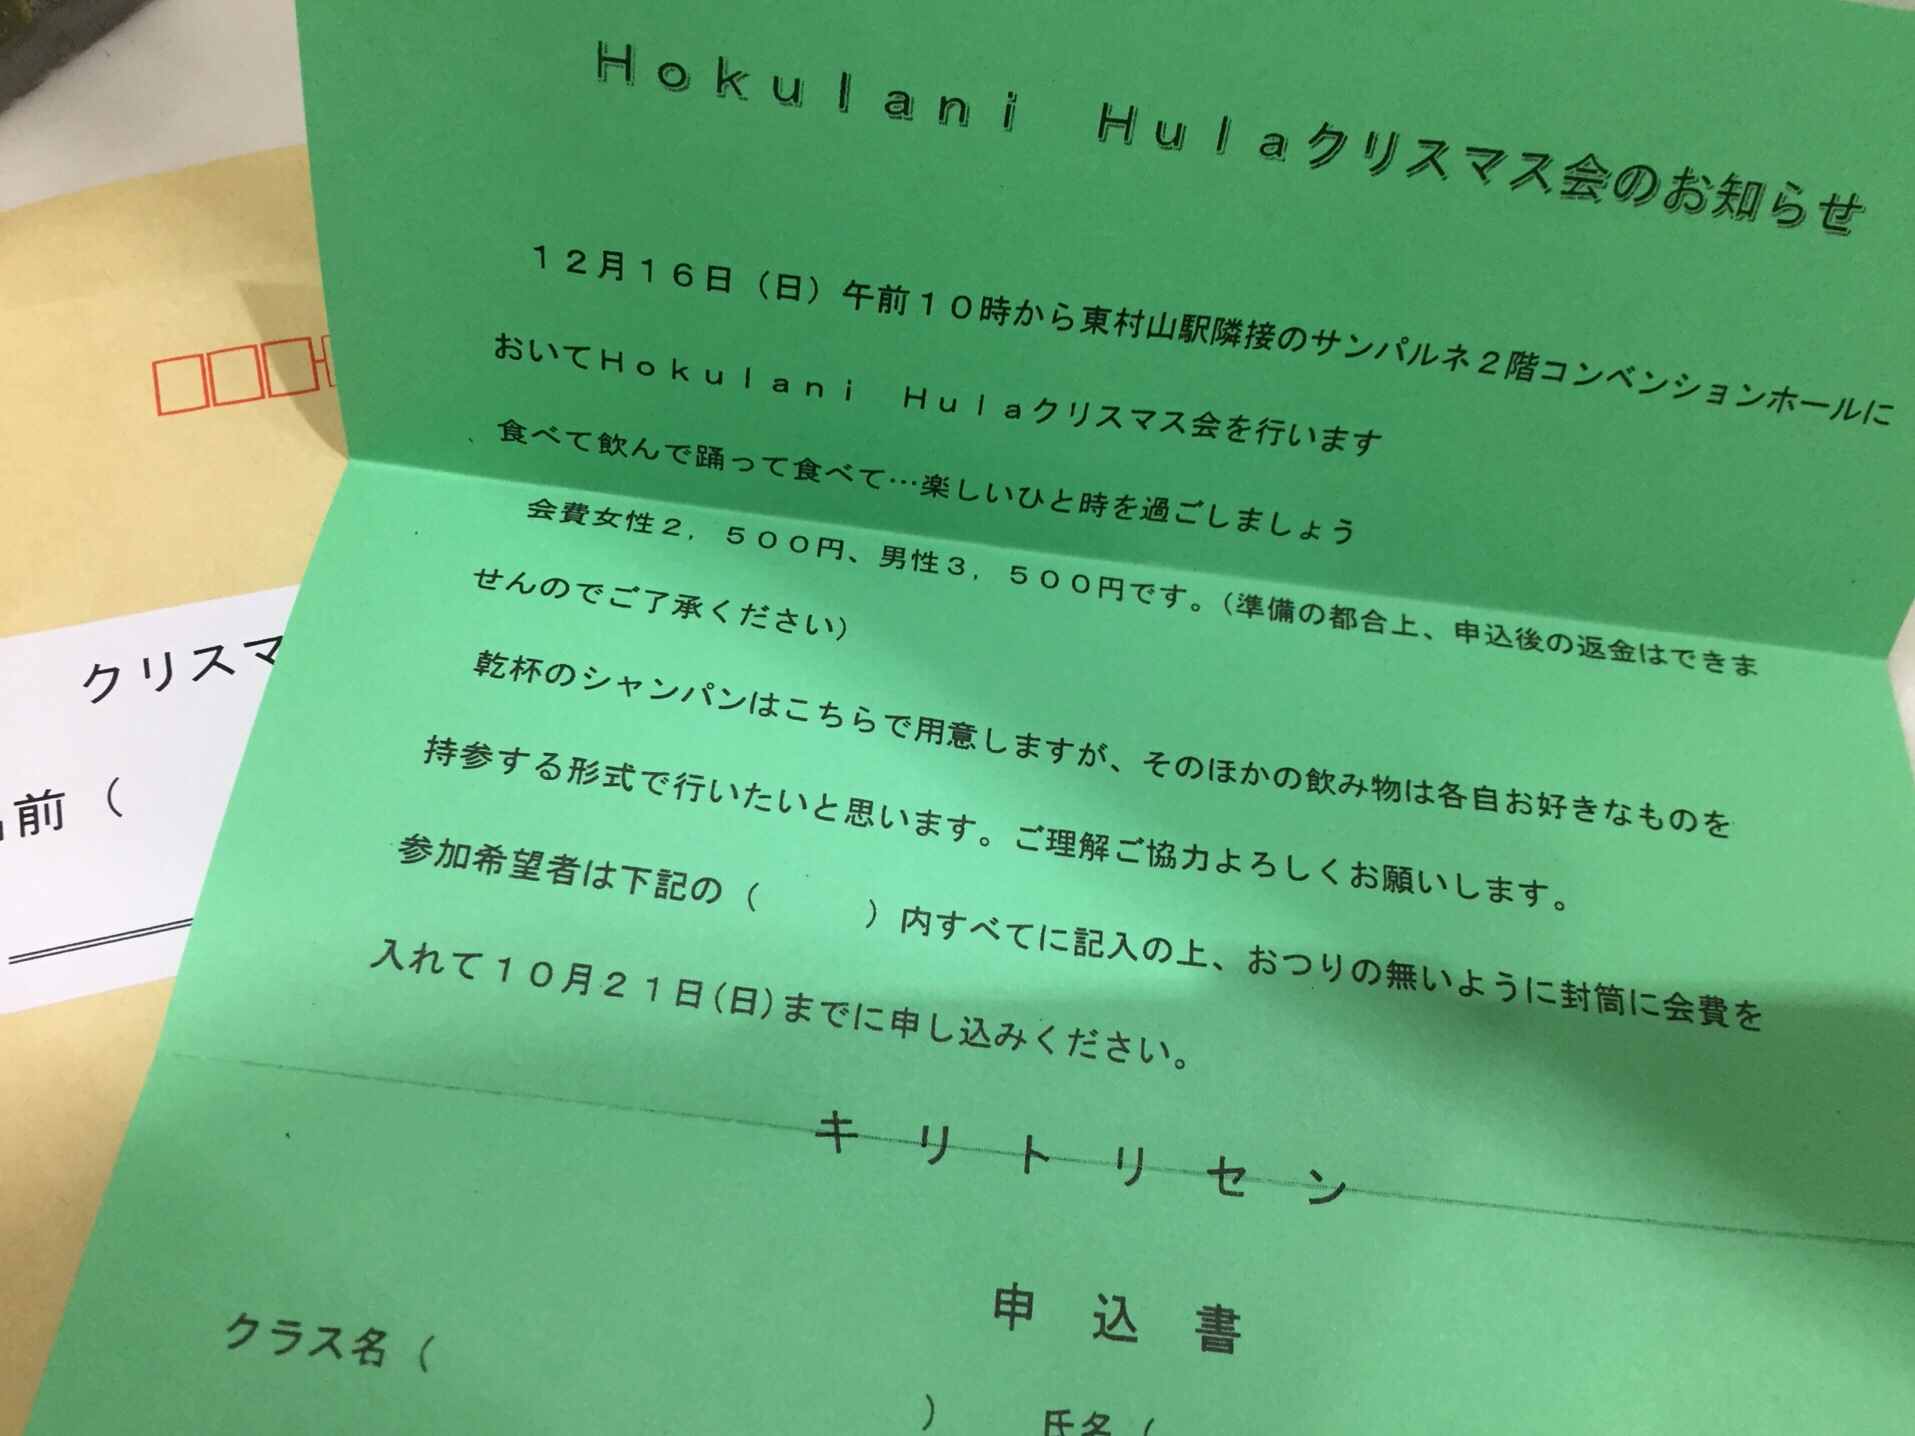 Ｈｏｋｕｌａｎｉ　Ｈｕｌａクリスマス会のお知らせ
１２月１６日（日）午前１０時から東村山駅隣接のサンパルネ２階コンベンションホールに
おいてＨｏｋｕｌａｎｉ　Ｈｕｌａクリスマス会を行います
食べて飲んで踊って食べて…楽しいひと時を過ごしましょう
会費女性２，５００円、男性３，５００円です。（準備の都合上、申込後の返金はできま
せんのでご了承ください）
乾杯のシャンパンはこちらで用意しますが、そのほかの飲み物は各自お好きなものを
持参する形式で行いたいと思います。ご理解ご協力よろしくお願いします。
参加希望者は下記の（　　　）内すべてに記入の上、おつりの無いように封筒に会費を
入れて１０月２１日（日）までに申し込みください。
キリトリセン
申込書
クラス名（　　　　　　　　　　　　）　　氏名（
クリスマ
前（